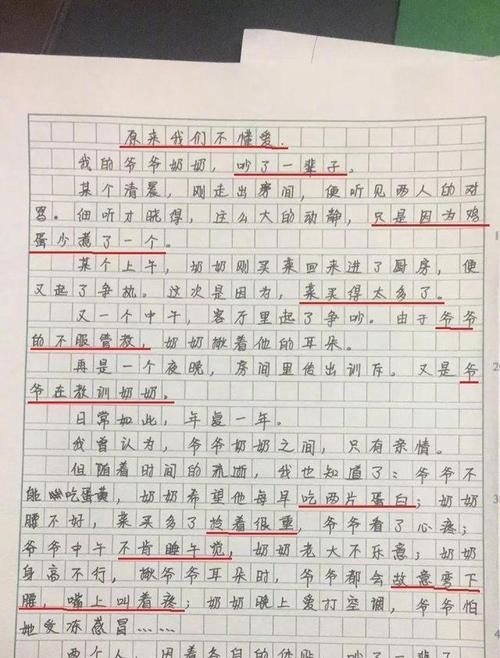 原来我们不懂爱.
我的爷爷奶奶，吵了一辈子。
某个清晨，刚走出房间，便听见两人的对
骂。细听才晓得，这么大的动静，只是因为鸡
蛋少煮了一个。
某个上午，奶奶刚买菜回来进了厨房，便
又起了争执。这次是因为，菜买得太多了。
又一个中午，客厅里起了争吵。由于爷爷
的不服管教，奶奶揪着他的耳朵。
再是一个夜晚，房间里传出训斥。又是爷
爷在教训奶奶。
日常如此，年复一年。
我曾认为，爷爷奶奶之间，只有亲情。
但随着时间的流逝，我也知道了：爷爷不
能吃蛋黄，奶奶希望他每早吃两片蛋白；奶奶
腰不好，菜买多了拎着很重，爷爷看了心疼；
爷爷中午不肯睡午觉，奶奶老大不乐意；奶奶
身高不行，揪爷爷耳朵时，爷爷都会故意弯下
腰，嘴上叫着疼；奶奶晚上爱打空调，爷爷怕
她受冻感冒……
两个人，因着各自的